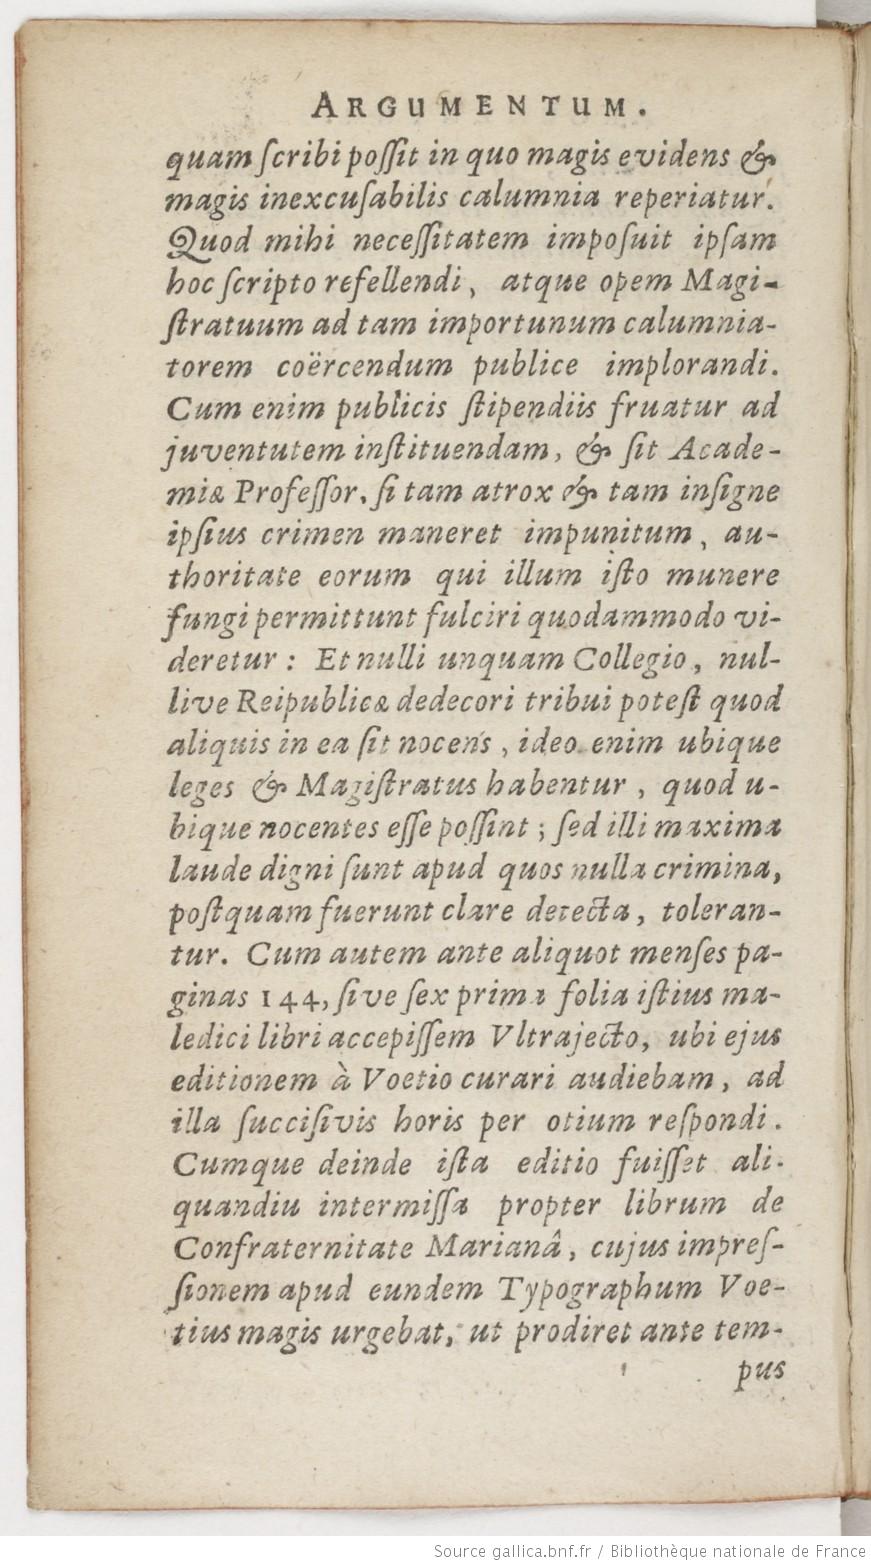 ARGUMENTUM.
quam scribi possit in quo magis evidens &
magis inexcusabilis calumnia reperiatur.
Quod mihi necessitatem imposuit ipsam
hoc scripto refellendi, atque opem Magi-
stratuum ad tam importunum calumnia-
torem coërcendum publice implorandi.
Cum enim publicis stipendiis fruatur ad
juventutem instituendam, & sit Acade-
miæ Professor, si tam atrox & tam insigne
ipsius crimen maneret impunitum, au-
thoritate eorum qui illum isto munere
fungi permittunt fulciri quodammodo vi-
deretur: Et nulli unquam Collegio, nul-
live Reipublicæ dedecori tribui potest quod
aliquis in ea sit nocens, ideo enim ubique
leges & Magistratus habentur, quod u-
bique nocentes esse possint; sed illi maxima
laude digni sunt apud quos nulla crimina,
postquam fuerunt clare detecta, toleran-
tur. Cum autem ante aliquot menses pa-
ginas 144, sive sex prima folia istius ma-
ledici libri accepissem Vltrajecto, ubi ejus
editionem à Voetio curari audiebam, ad
illa succisivis horis per otium respondi.
Cumque deinde ista editio fuisset ali-
quandiu intermissa propter librum de
Confraternitate Marianâ, cujus impres-
sionem apud eundem Typographum Voe-
tius magis urgebat, ut prodiret ante tem-
pus
Source gallica.bnf.fr / Bibliothèque nationale de France